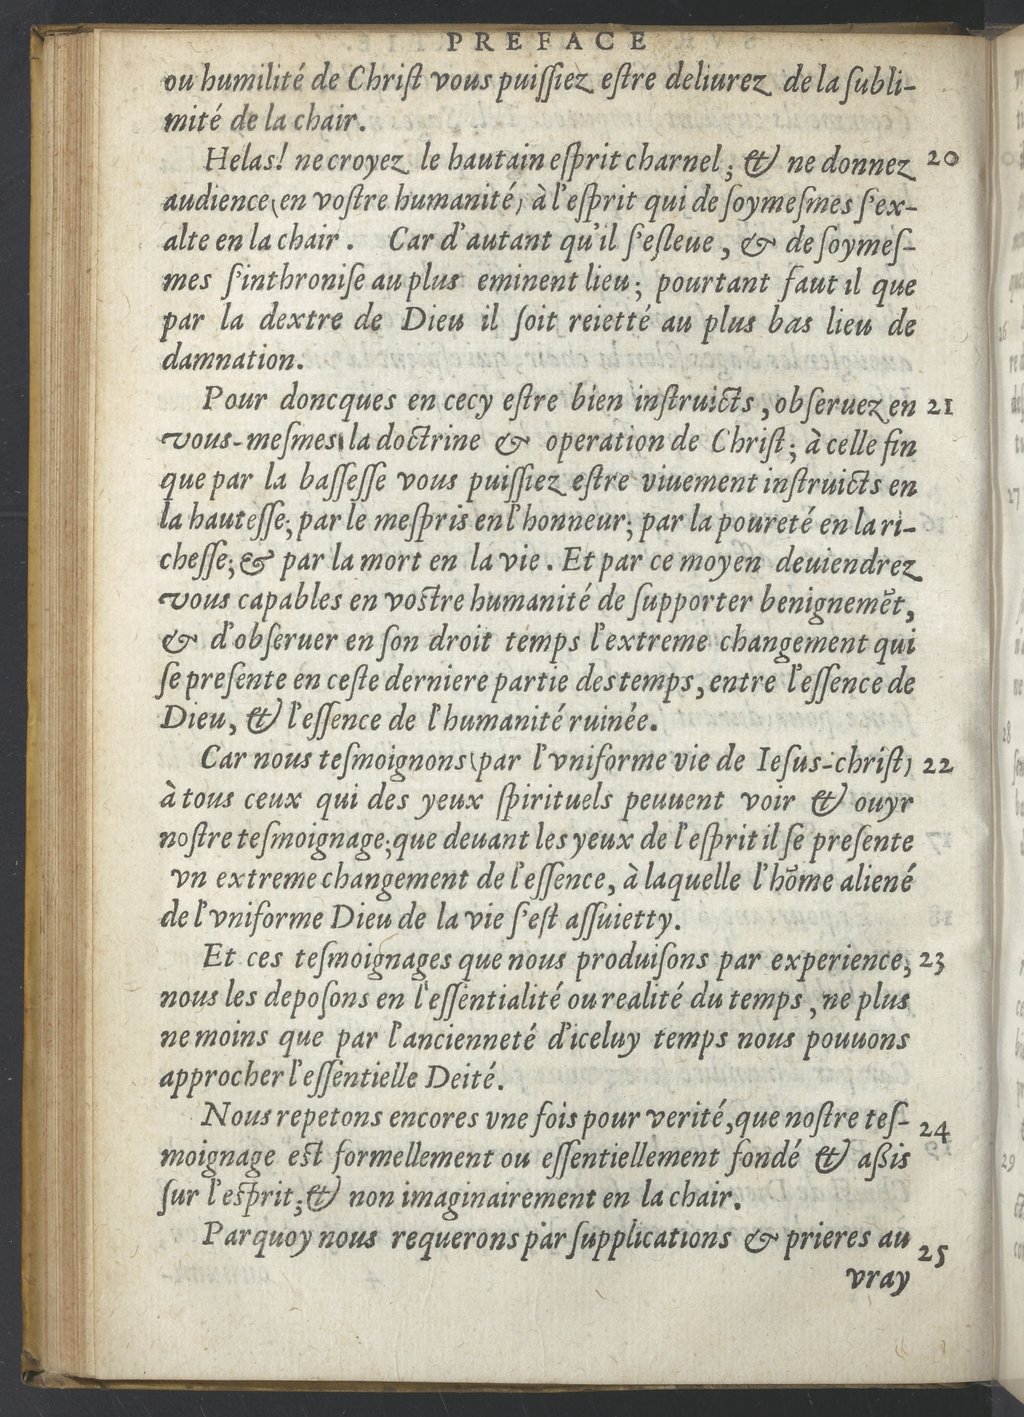 PREFACE
ou humilité de Chriſt vous puiſſiez eſtre deliurez de la ſubli-
mité de la chair.
Helas! ne croyez le hautain eſprit charnel; & ne donnez 20
audience (en voſtre humanité) à l'eſprit qui de ſoymeſmes s'ex-
alte en la chair. Car d'autant qu'il s'eſleue, & de ſoymeſ-
mes s'inthroniſe au plus eminent lieu; pourtant faut il que
par la dextre de Dieu il ſoit reietté au plus bas lieu de
damnation.
Pour doncques en cecy eſtre bien inſtruicts, obſeruez en 21
vous-meſmes la doctrine & operation de Chriſt; à celle fin
que par la baſſeſſe vous puiſſiez eſtre viuement inſtruicts en
la hauteſſe; par le meſpris en l'honneur; par la poureté en la ri-
cheſſe; & par la mort en la vie. Et par ce moyen deuiendrez
vous capables en voſtre humanité de ſupporter benignemẽt,
& d'obſeruer en ſon droit temps l'extreme changement qui
ſe preſente en ceſte derniere partie des temps, entre l'eſſence de
Dieu, & l'eſſence de l'humanité ruinée.
Car nous teſmoignons (par l'vniforme vie de Ieſus-chriſt) 22
à tous ceux qui des yeux ſpirituels peuuent voir & ouyr
noſtre teſmoignage; que deuant les yeux de l'eſprit il ſe preſente
vn extreme changement de l'eſſence, à laquelle l'hõme aliené
de l'vniforme Dieu de la vie s'eſt aſſuietty.
Et ces teſmoignages que nous produiſons par experience, 23
nous les depoſons en l'eſſentialité ou realité du temps, ne plus
ne moins que par l'ancienneté d'iceluy temps nous pouuons
approcher l'eſſentielle Deité.
Nous repetons encores vne fois pour verité, que noſtre teſ- 24
moignage eſt formellement ou eſſentiellement fondé & aßis
ſur l'eſprit; & non imaginairement en la chair.
Parquoy nous requerons par ſupplications & prieres au 25
vray